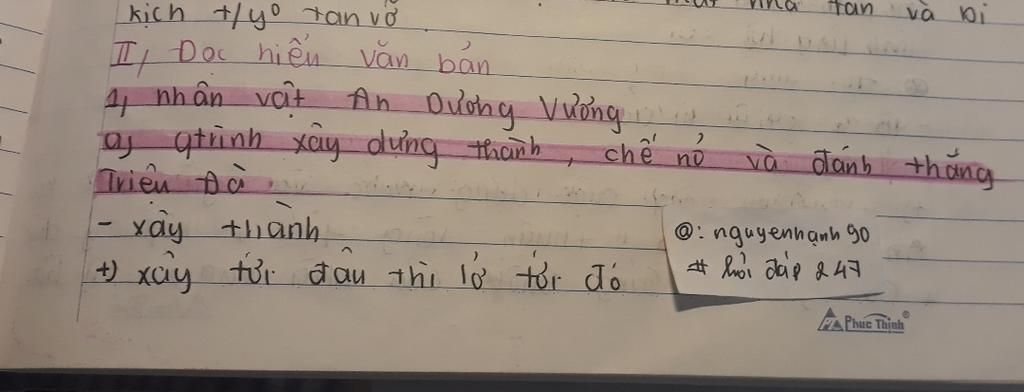 kịch t/yº tan vỡ
nhà tan và bi
II, Đọc hiểu văn bản
1, nhân vật An Dương Vương
a, qtrình xây dựng thành, chế nỏ và đánh thắng
Triệu Đà
- xây thành
+) xây tới đâu thì lở tới đó
@: nguyenhạnh90
# hỏi đáp 247
Phuc Thinh®